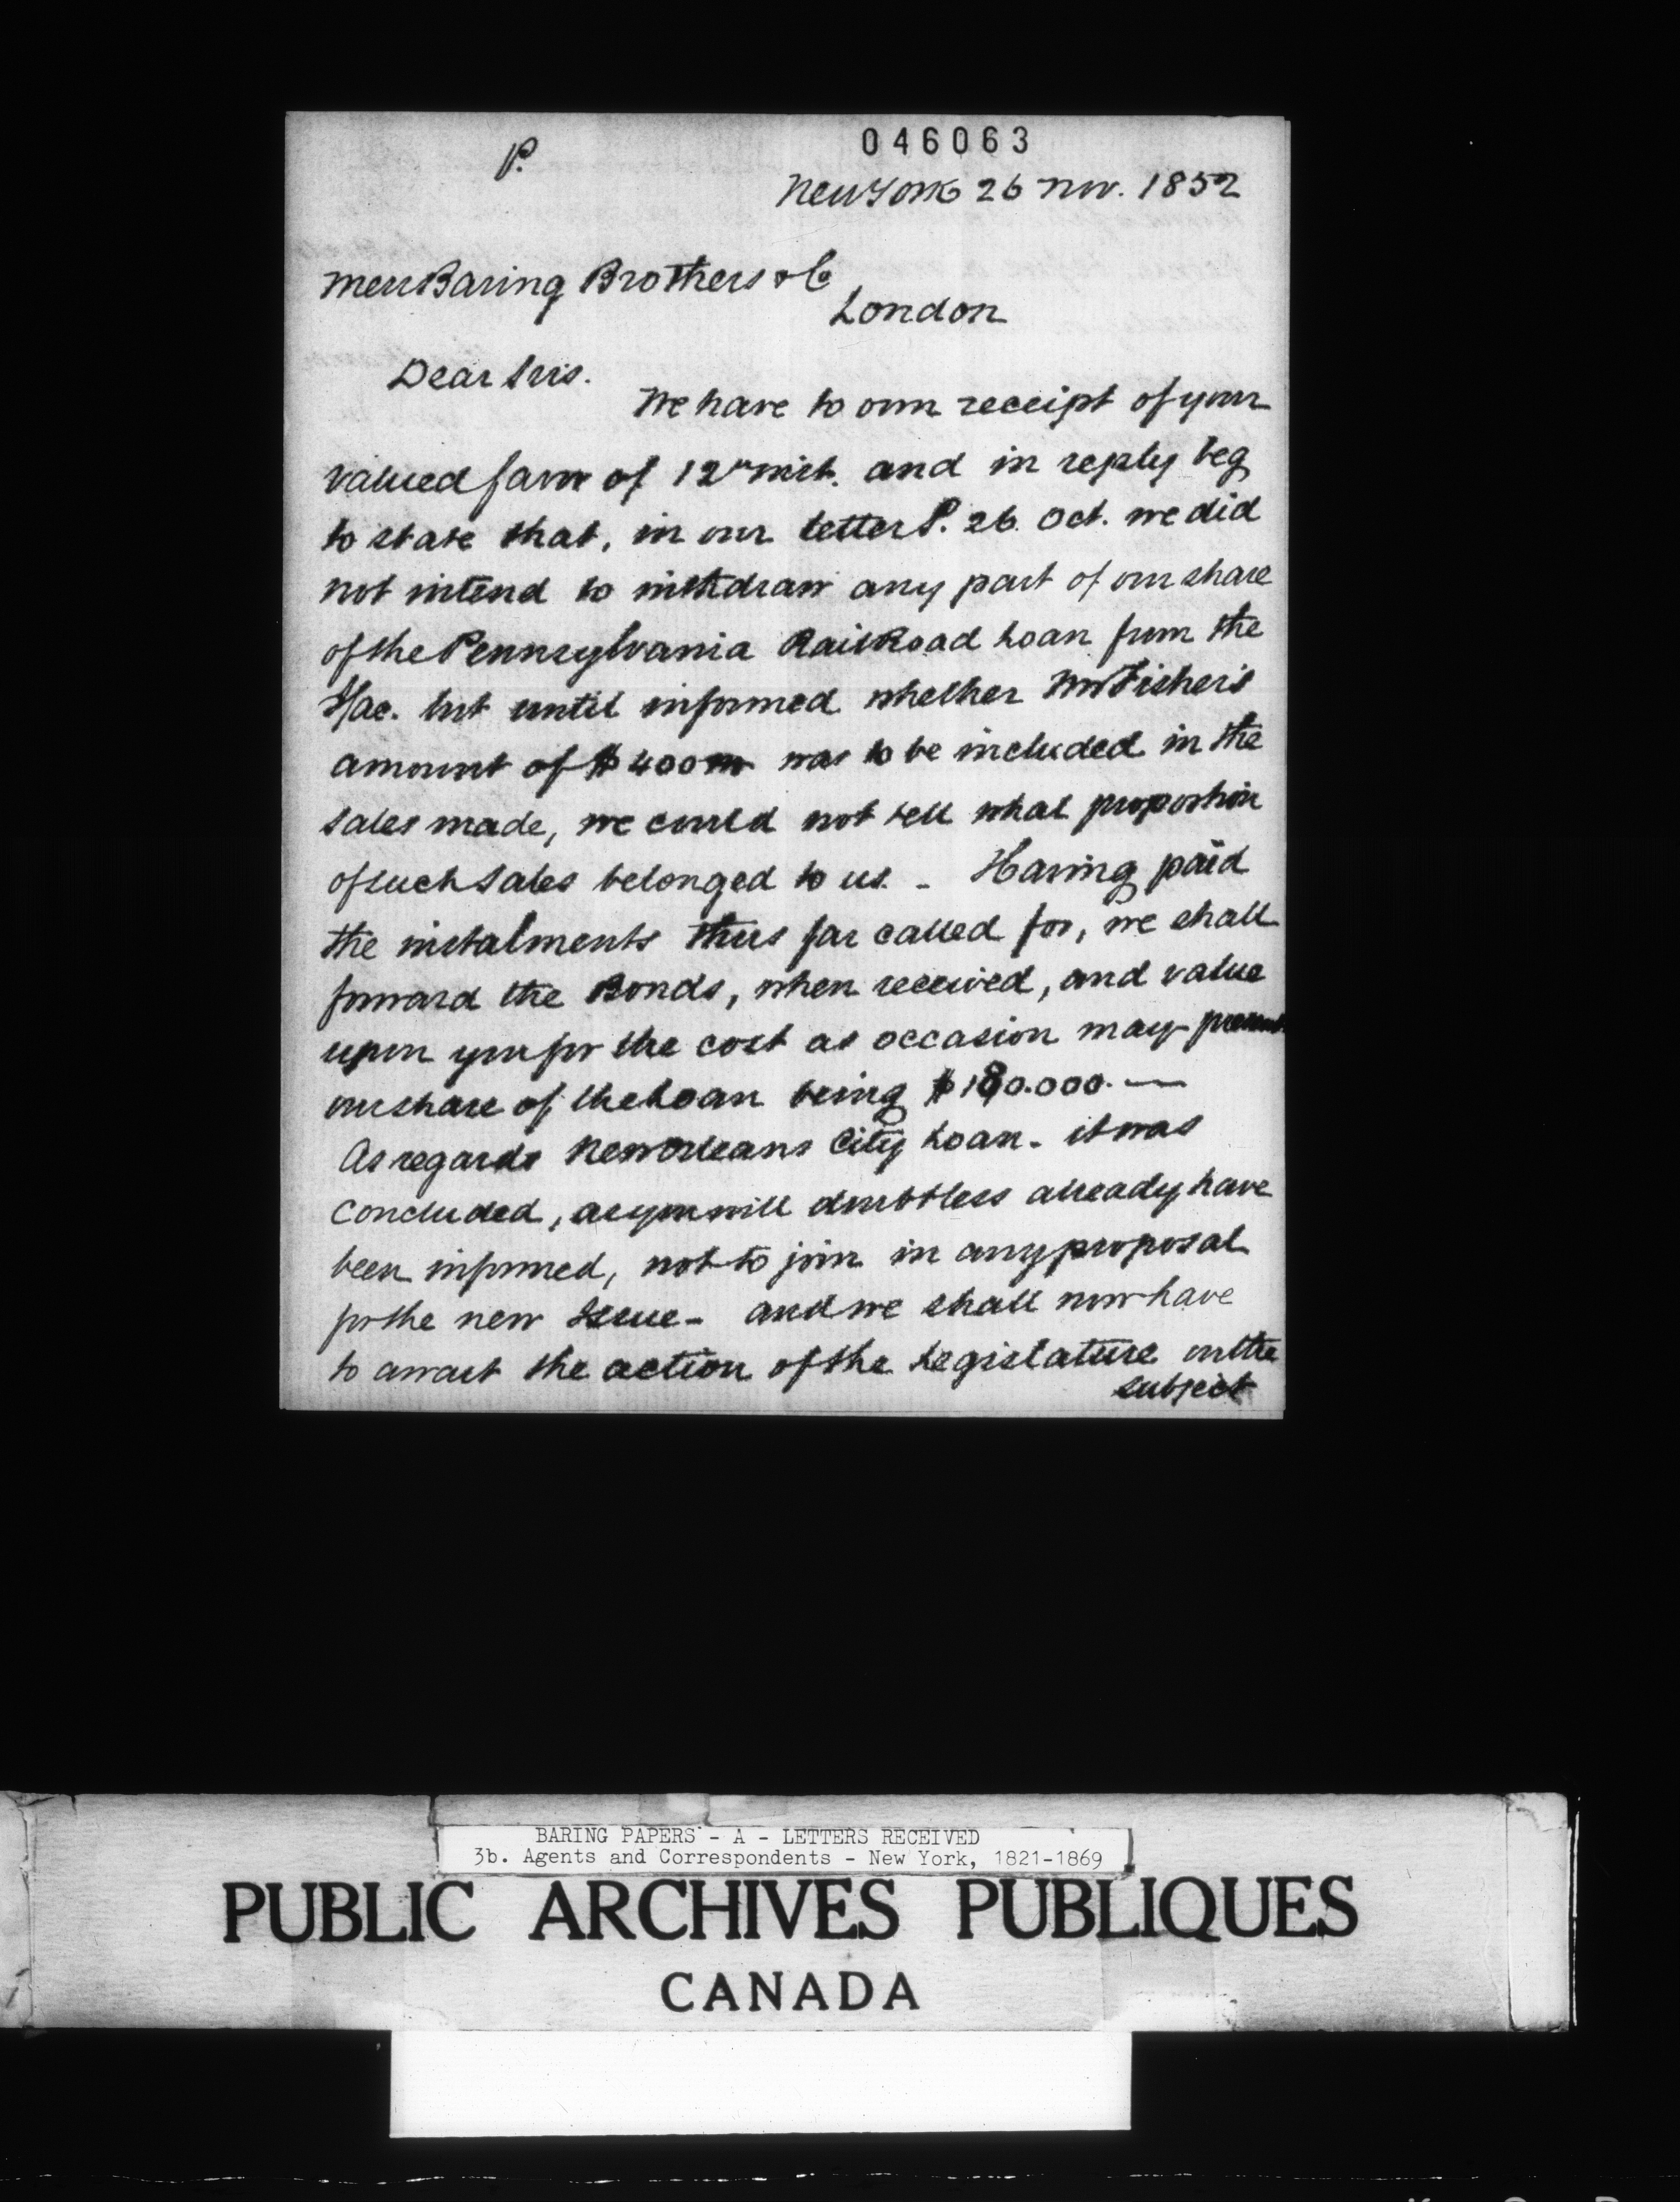 P.
046063
New York 26 Nov. 1852
Mess Baring Brothers & Co
London
Dear Sirs.
We have to own receipt of your
valued favor of 12th inst. and in reply beg
to state that, in our letter P. 26. Oct. we did
not intend to withdraw any part of our share
of the Pennsylvania RailRoad Loan from the
J/ac. but until informed whether Mr Fisher's
amount of $400m was to be included in the
sales made, we could not tell what proportion
of such sales belonged to us. - Having paid
the instalments thus far called for, we shall
forward the Bonds, when received, and value
upon you for the cost as occasion may present
our share of the Loan being $180.000. —
As regards New Orleans City Loan - it was
concluded, as you will doubtless already have
been informed, not to join in any proposal
for the new Issue - and we shall now have
to await the action of the Legislature on the
subject
BARING PAPERS - A - LETTERS RECEIVED
3b. Agents and Correspondents - New York, 1821-1869
PUBLIC ARCHIVES PUBLIQUES
CANADA